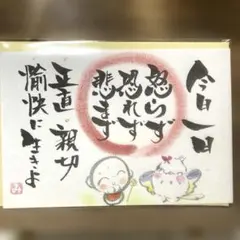 今日一日
怒らず
恐れず
悲まず
正直 親切
愉快に生きよ